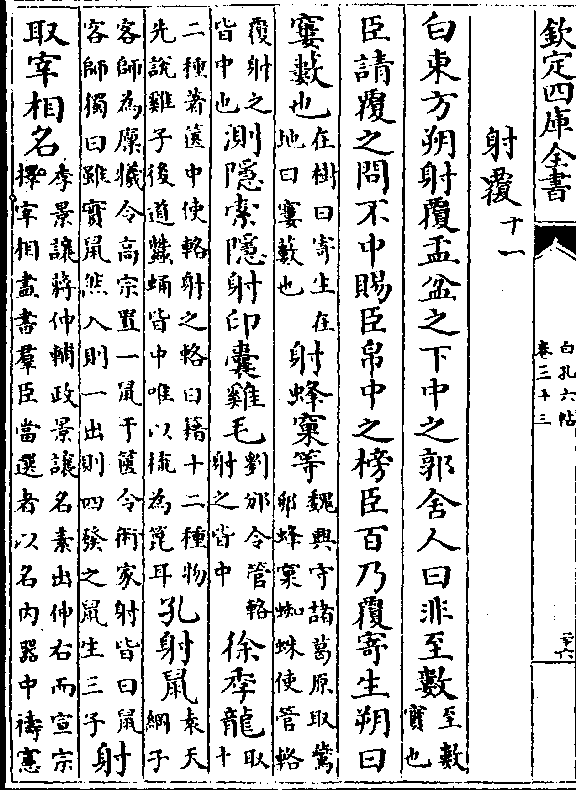 欽定四庫全書
白孔六帖
卷三十三
二十六
射覆十一
白東方朔射覆盂盆之下中之郭舍人曰非至數至數實也
臣請覆之問不中賜臣帛中之榜臣百乃覆寄生朔曰
寠數也在樹曰寄生在地曰寠數也射蜂窠等魏興守諸葛原取鷰卵蜂窠蜘蛛使管輅
覆射之皆中也測隱索隱射印囊雞毛劉邠令管輅射之皆中徐季龍取十
二種著篋中使輅射之輅曰籍十二種物先說雞子後道蠶蛹皆中唯以梳為篦耳孔射鼠袁天綱子
客師為廩犧令高宗置一鼠于篋令術家射皆曰鼠客師獨曰雖實鼠然入則一出則四發之鼠生三子射
取宰相名李景讓蔣仲輔政景讓名素出仲右而宣宗擇宰相盡書羣臣當選者以名內器中禱憲